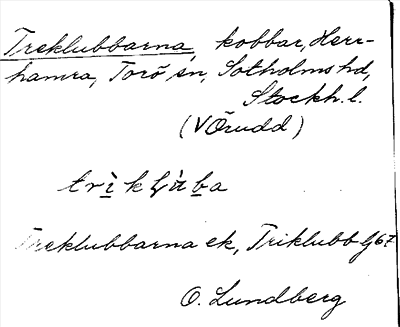 Treklubbarna, kobbar, Herr-
hamra, Torö sn, Sotholms hd,
Stockh. l.
(VÖrudd)
Treklubbarna ek, Triklubb
O. Lundberg